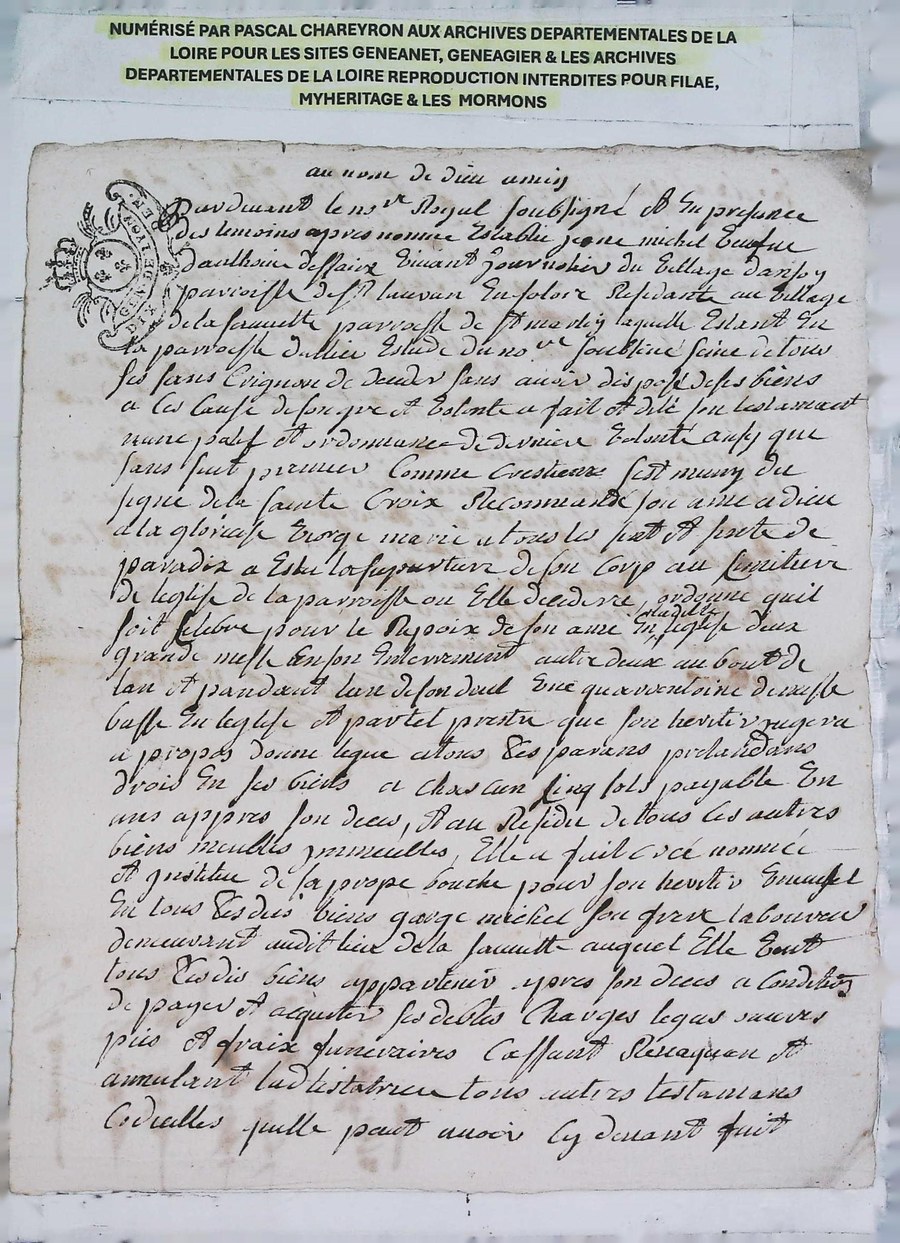 NUMÉRISÉ PAR PASCAL CHAREYRON AUX ARCHIVES DEPARTEMENTALES DE LA
LOIRE POUR LES SITES GENEANET, GENEAGIER & LES ARCHIVES
DEPARTEMENTALES DE LA LOIRE REPRODUCTION INTERDITES POUR FILAE,
MYHERITAGE & LES MORMONS
au nom de dieu amin
GEN. DE LYON
DIX DEN.
Pardevant le no.re Royal soubsigné et En presence
des temoins apres nommé Establie jeane michel Veufve
danthoine deffaix Vivant journalier du Village
parroisse de St En foloix Residante au village
de la fauvette parroisse de St martin laquelle Estant En
la parroisse Estude du no.re soubsigné seine de tous
ses sans Creignon de deceder sans avoir disposé de ses biens
a Ces Cause de son gré et Volonté a fait et dité son testament
et ordonnance de derniere Volonté ansy que
sans suit premier Comme Crestiene sest muny du
signe de la sainte Croix Recommandé son ame a dieu
a la glorieuse Vierge marie a tous les st et ste de
paradix a Eslu la sepurture de son Corp au Simitiere
de leglise de la parroisse ou Elle decedera ordonne quil
soit selebré pour le Repoix de son ame En ladite eglise deux
grande messe En son Enterrement autre deux au bout de
lan et pandant lan de son deul Une quarantaine de messe
basse En leglise et par tel prestre que son heritier jugera
a propos donne legue a tous Ses parans pretandans
drois En ses biens a chascun Cinq sols payable En
ans appres son deces, et au Residu de tous Ces autres
biens meubles jmmeubles, Elle a fait Creé nommé
et jnstitué de sa prope bouche pour son heritier Vniversel
En tous Sesdis biens michel son frere laboureur
demeurant audit lieu de la fauvette auquel Elle Veut
tous Sesdis biens appartenir apres son deces a Condition
de payer et acquiter ses debtes Charges legas œuvres
pies et fraix funeraires Cassant Revoquan et
annulant lad testatrice tous autres testamans
Codicilles quelle peut avoir Cy devant fait